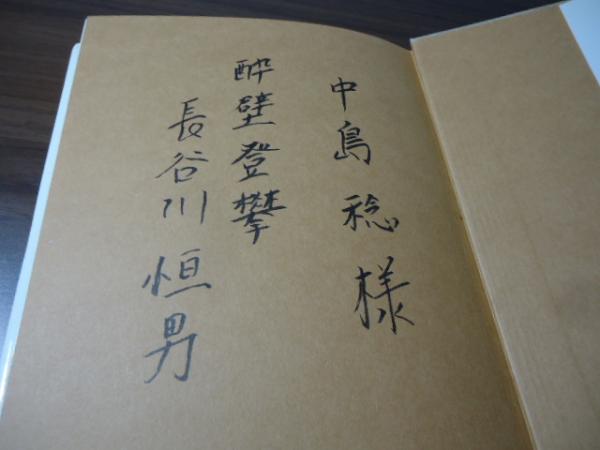 中島稔様
酔壁登攀
長谷川恒男